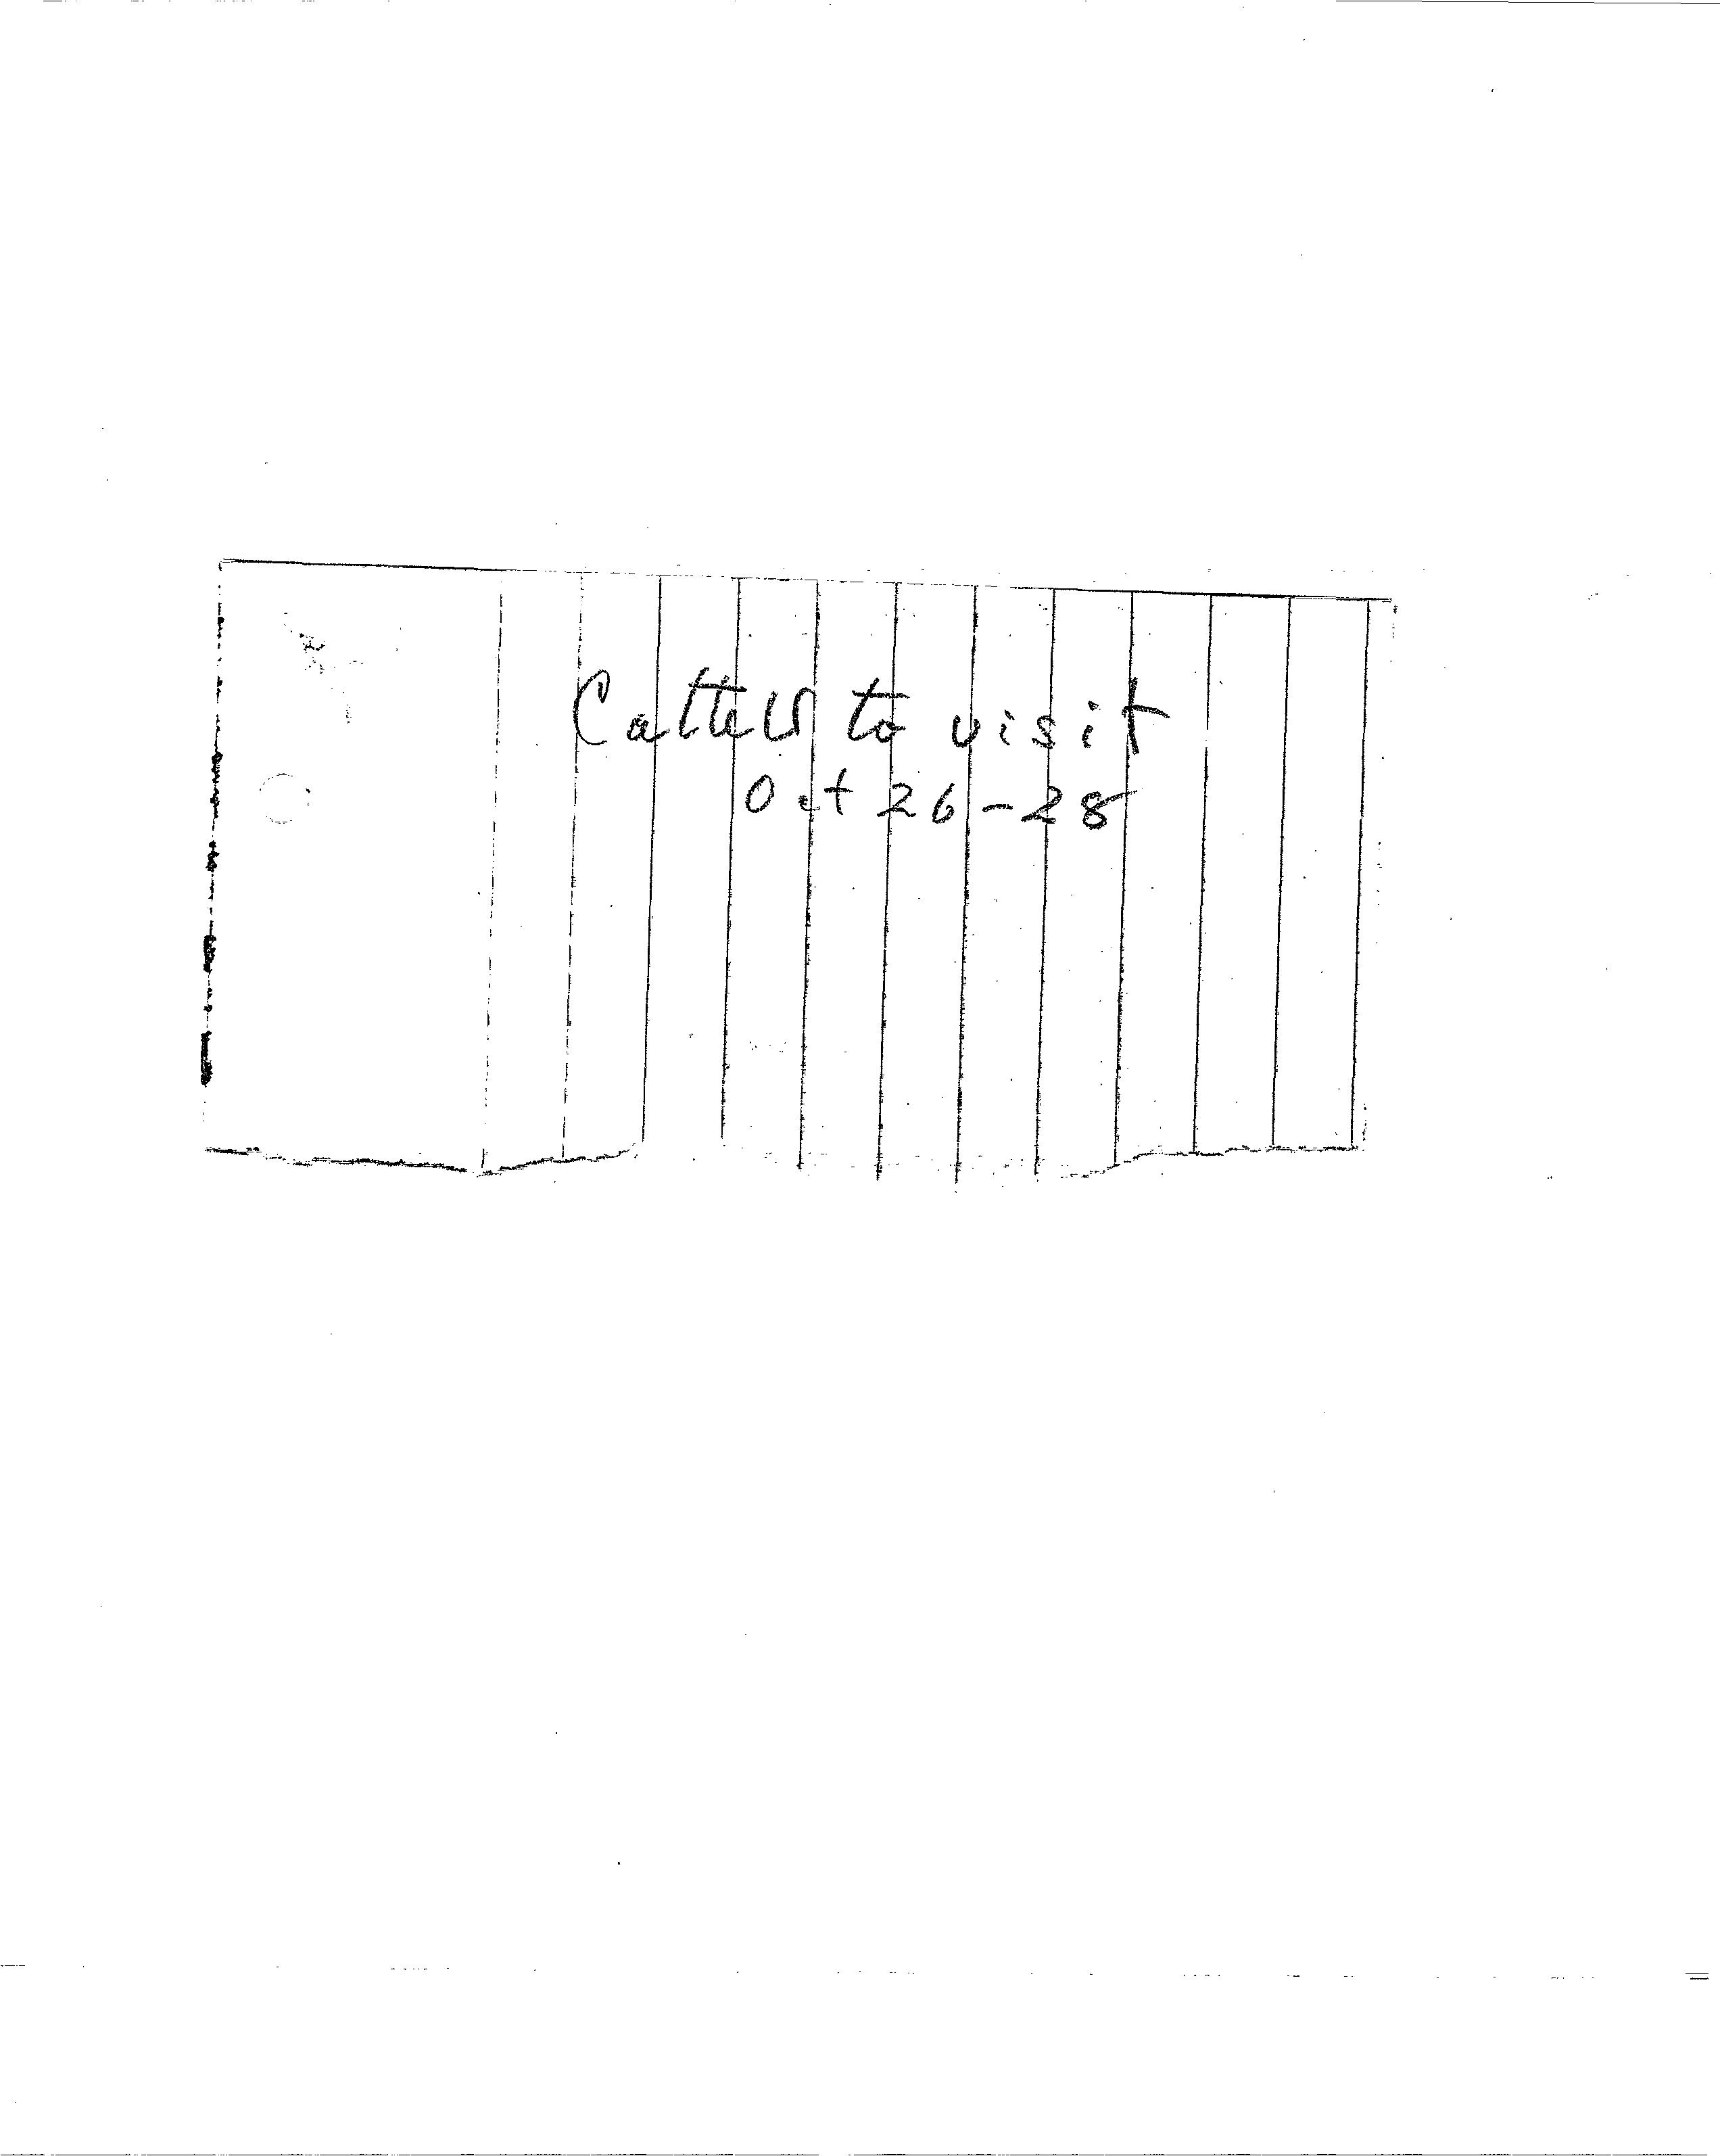 Cattell to visit
Oct 26-28